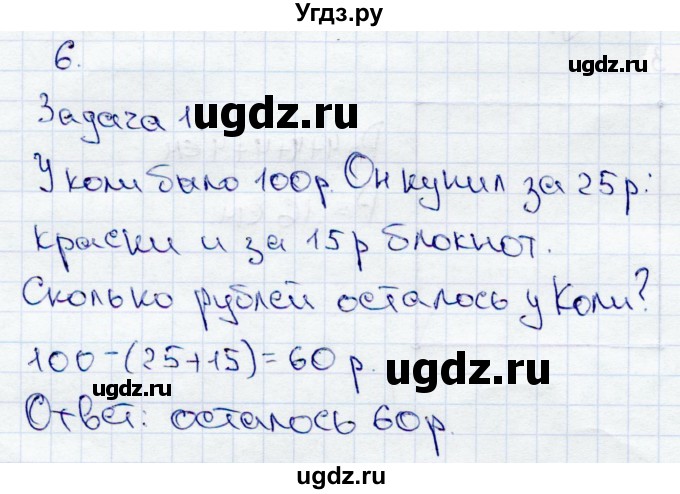 Угдз.ру
6.
ugdz.ru
Задача 1
ugdz.ru
У коли было 100р. Он купил за 25р:
краски и за 15р блокнот.
Сколько рублей осталось у Коли?
100-(25+15)=60 р.
ugdz.ru
ugdz.ru
Ответ: осталось 60р.
ugdz.ru